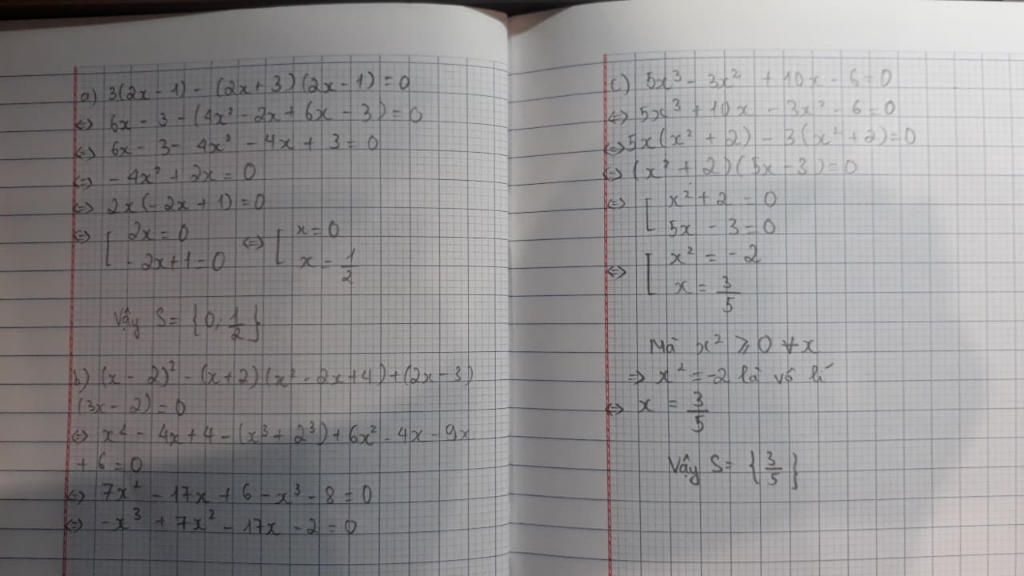 a) 3(2x - 1) - (2x + 3)(2x - 1) = 0
⇔ 6x - 3 - (4x² - 2x + 6x - 3) = 0
⇔ 6x - 3 - 4x² - 4x + 3 = 0
⇔ - 4x² + 2x = 0
⇔ 2x(-2x + 1) = 0
⇔ [ 2x = 0 ⇔ [ x = 0
- 2x + 1 = 0 x = 1/2
Vậy S = {0, 1/2}
b) (x - 2)² - (x + 2)(x² - 2x + 4) + (2x - 3)
(3x - 2) = 0
⇔ x² - 4x + 4 - (x³ + 2³) + 6x² - 4x - 9x
+ 6 = 0
⇔ 7x² - 17x + 6 - x³ - 8 = 0
⇔ -x³ + 7x² - 17x - 2 = 0
c) 5x³ - 3x² + 10x - 6 = 0
⇔ 5x³ + 10x - 3x² - 6 = 0
⇔ 5x(x² + 2) - 3(x² + 2) = 0
⇔ (x² + 2)(5x - 3) = 0
⇔ [ x² + 2 = 0
5x - 3 = 0
⇔ [ x² = - 2
x = 3/5
Mà x² ⩾ 0 ∀x
⇒ x² = -2 là vô lí
⇔ x = 3/5
Vậy S = {3/5}